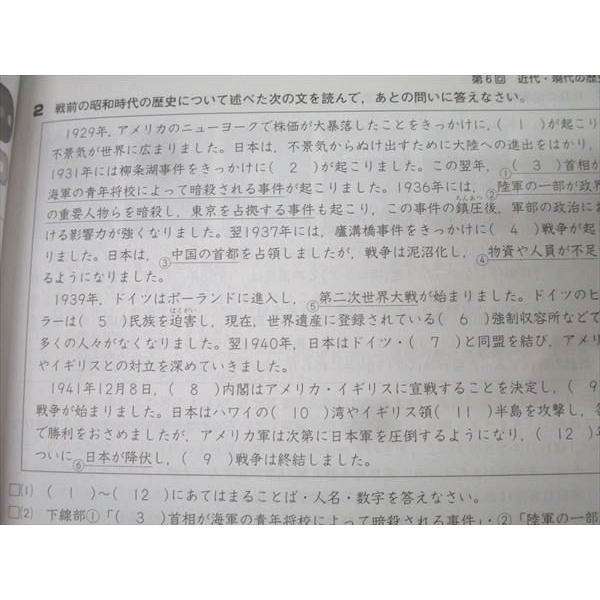 第6回 近代・現代の歴史
2 戦前の昭和時代の歴史について述べた次の文を読んで,あとの問いに答えなさい。
1929年,アメリカのニューヨークで株価が大暴落したことをきっかけに,( 1 )が起こり
不景気が世界に広まりました。日本は,不景気からぬけ出すために大陸への進出をはかり,
1931年には柳条湖事件をきっかけに( 2 )が起こりました。この翌年,①( 3 )首相が
海軍の青年将校によって暗殺される事件が起こりました。1936年には,②陸軍の一部が政界
の重要人物らを暗殺し,東京を占拠する事件も起こり,この事件の鎮圧後,軍部の政治にお
ける影響力が強くなりました。翌1937年には,盧溝橋事件をきっかけに( 4 )戦争が起こ
りました。日本は,③中国の首都を占領しましたが,戦争は泥沼化し,④物資や人員が不足
るようになりました。
1939年,ドイツはポーランドに進入し,⑤第二次世界大戦が始まりました。ドイツのヒ
ラーは( 5 )民族を迫害し,現在,世界遺産に登録されている( 6 )強制収容所などで
多くの人々がなくなりました。翌1940年,日本はドイツ・( 7 )と同盟を結び,アメリ
やイギリスとの対立を深めていきました。
1941年12月8日,( 8 )内閣はアメリカ・イギリスに宣戦することを決定し,( 9
戦争が始まりました。日本はハワイの( 10 )湾やイギリス領( 11 )半島を攻撃し,各
で勝利をおさめましたが,アメリカ軍は次第に日本軍を圧倒するようになり,( 12 )年
ついに⑥日本が降伏し,( 9 )戦争は終結しました。
□(1) ( 1 )~( 12 )にあてはまることば・人名・数字を答えなさい。
□(2) 下線部①「( 3 )首相が海軍の青年将校によって暗殺される事件」・②「陸軍の一部